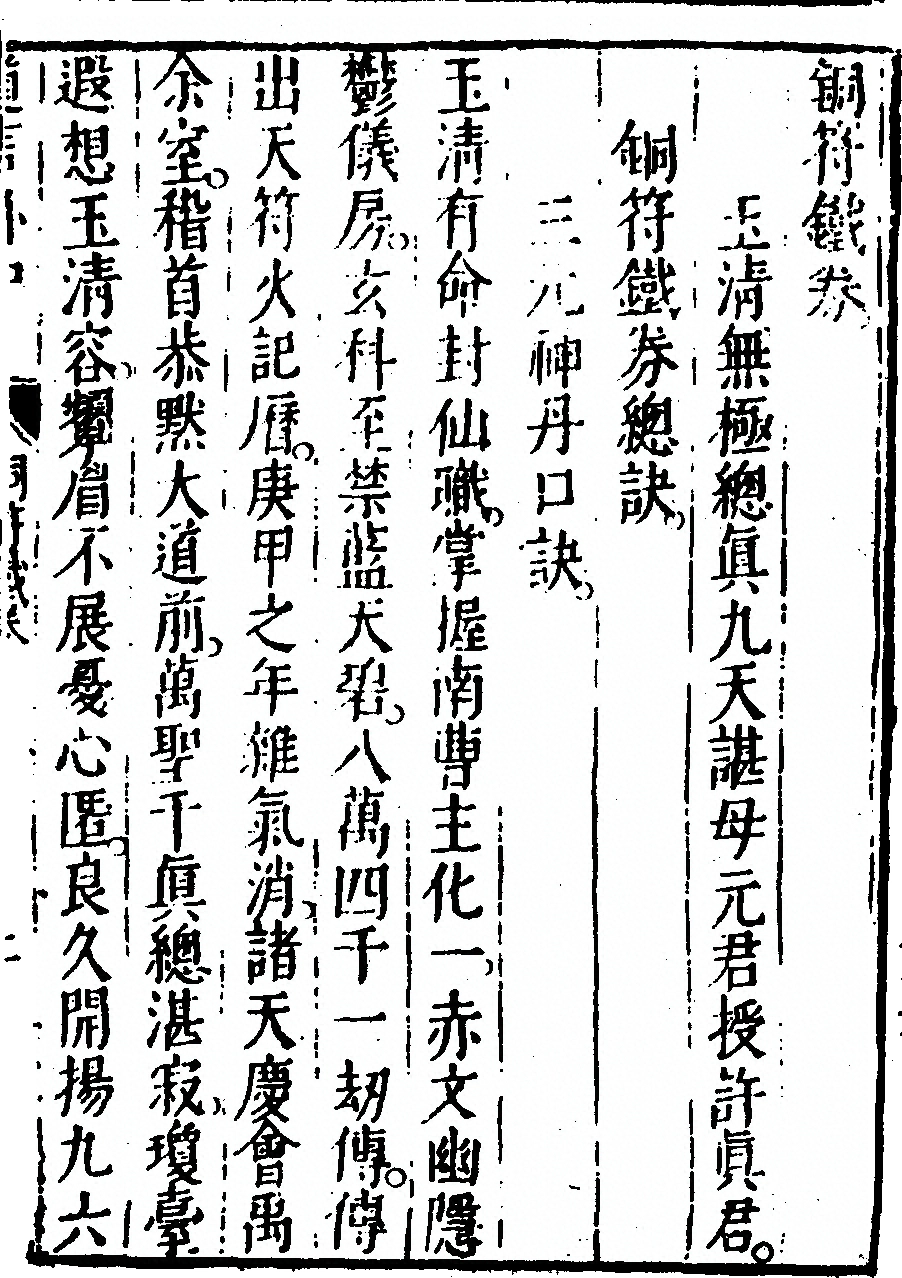 銅符鐵券
玉淸無極總眞九天諶母元君授許眞君。
銅符鐵券總訣
三元神丹口訣
玉淸有命封仙職。掌握南曹主化一。赤文幽隱
鬱儀房。玄科至禁藍天碧。八萬四千一劫傳。傳
出天符火記曆。庚甲之年雜氣消。諸天慶會禹
余室。稽首恭默大道前。萬聖千眞總湛寂。瓊臺
遐想玉淸容。顰眉不展憂心匿。良久開揚九六